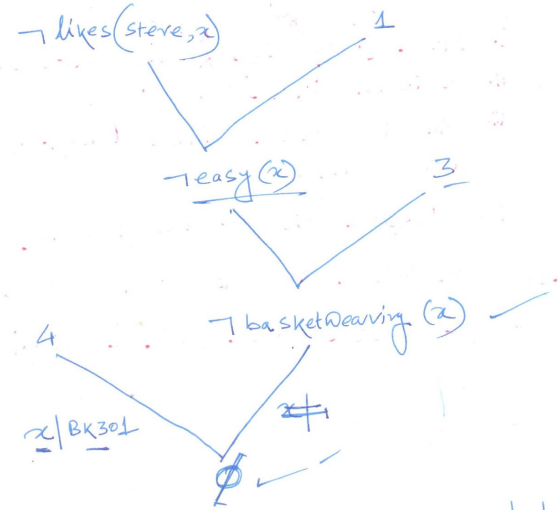 ¬ likes(steve,x)
1
¬easy(x)
3
¬basketWeaving (x)
4
x|BK301
ϕ